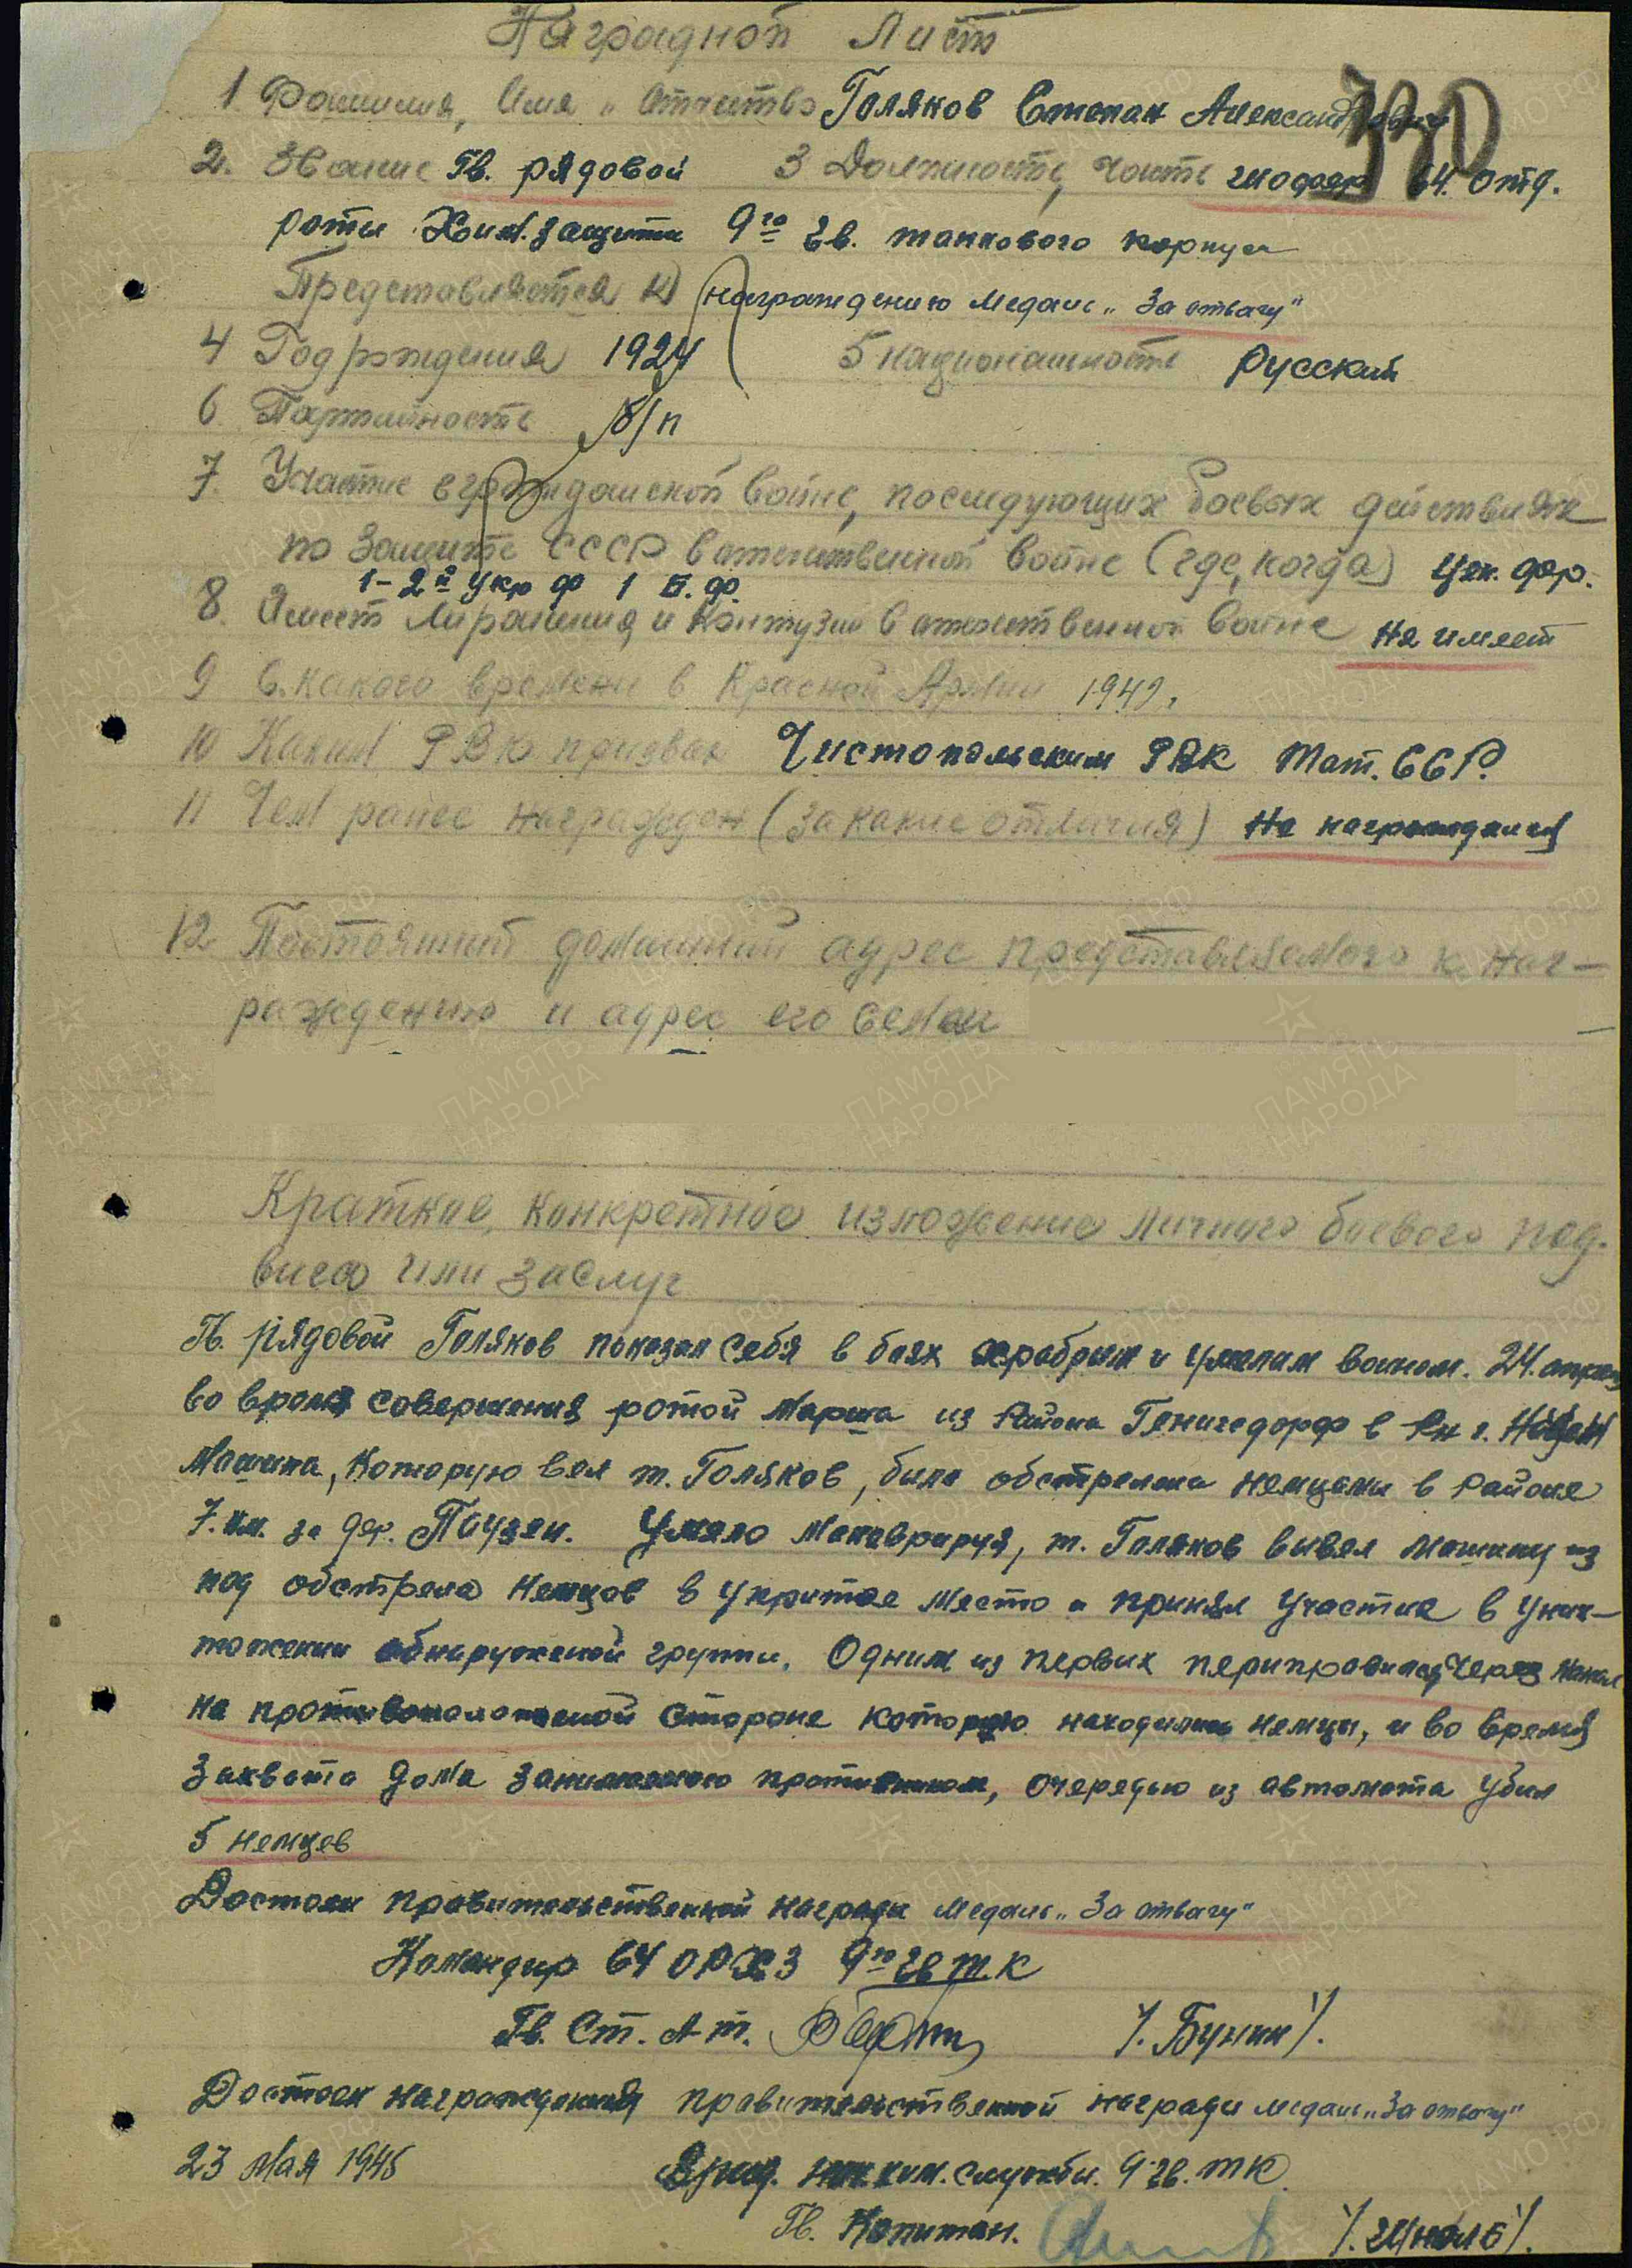 Наградной Лист
330
1 Фамилия, Имя и Отчество Голяков Степан Александрович
2. Звание Гв. рядовой 3 Должность, часть шофер 64. отд.
роты Хим. защиты 9го гв. танкового корпуса
Представляется к награждению медаль „За отвагу"
4 Год рождения 1924 5 национальность русский
6 Партийность б/п
7. Участие в гражданской войне, последующих боевых действиях
по защите СССР в отечественной войне (где, когда) Цен. фр.
1-2й Укр ф 1 Б. ф.
8. Имеет ли ранения и контузии в отечественной войне не имеет
9 С какого времени в Красной Армии 1942.
10 Каким РВК призван Чистопольским РВК Тат. ССР.
11 Чем ранее награжден (за какие отличия) Не награждался
12 Постоянный домашний адрес представляемого к наг-
раждению и адрес его семьи
Краткое, конкретное изложение личного боевого под-
вига или заслуг
Гв. рядовой Голяков показал себя в боях храбрым и умелым воином. 24. апреля
во время совершения ротой марша из района Генигсдорф в рн г.
Машина, которую вел т. Голяков, была обстреляна немцами в районе
7. км. за дер. Паузен. Умело маневрируя, т. Голяков вывел машину из
под обстрела немцов в укрытое место и принял участие в унич-
тожении обнаруженой группы. Одним из первых переправился через канал
на противоположеной стороне которого находились немцы, и во время
захвата дома занимаемого противником, очередью из автомата убил
5 немцев
Достоин правительственной награды медаль „За отвагу"
Командир 64 ОРХЗ 9го гв т.к
Гв. Ст. л-т. /.Бунин/.
Достоин награждения правительственной награды медаль „За отвагу"
23 Мая 1945 Врид. нач. хим. службы. 9 гв. ТК.
Гв. Капитан.